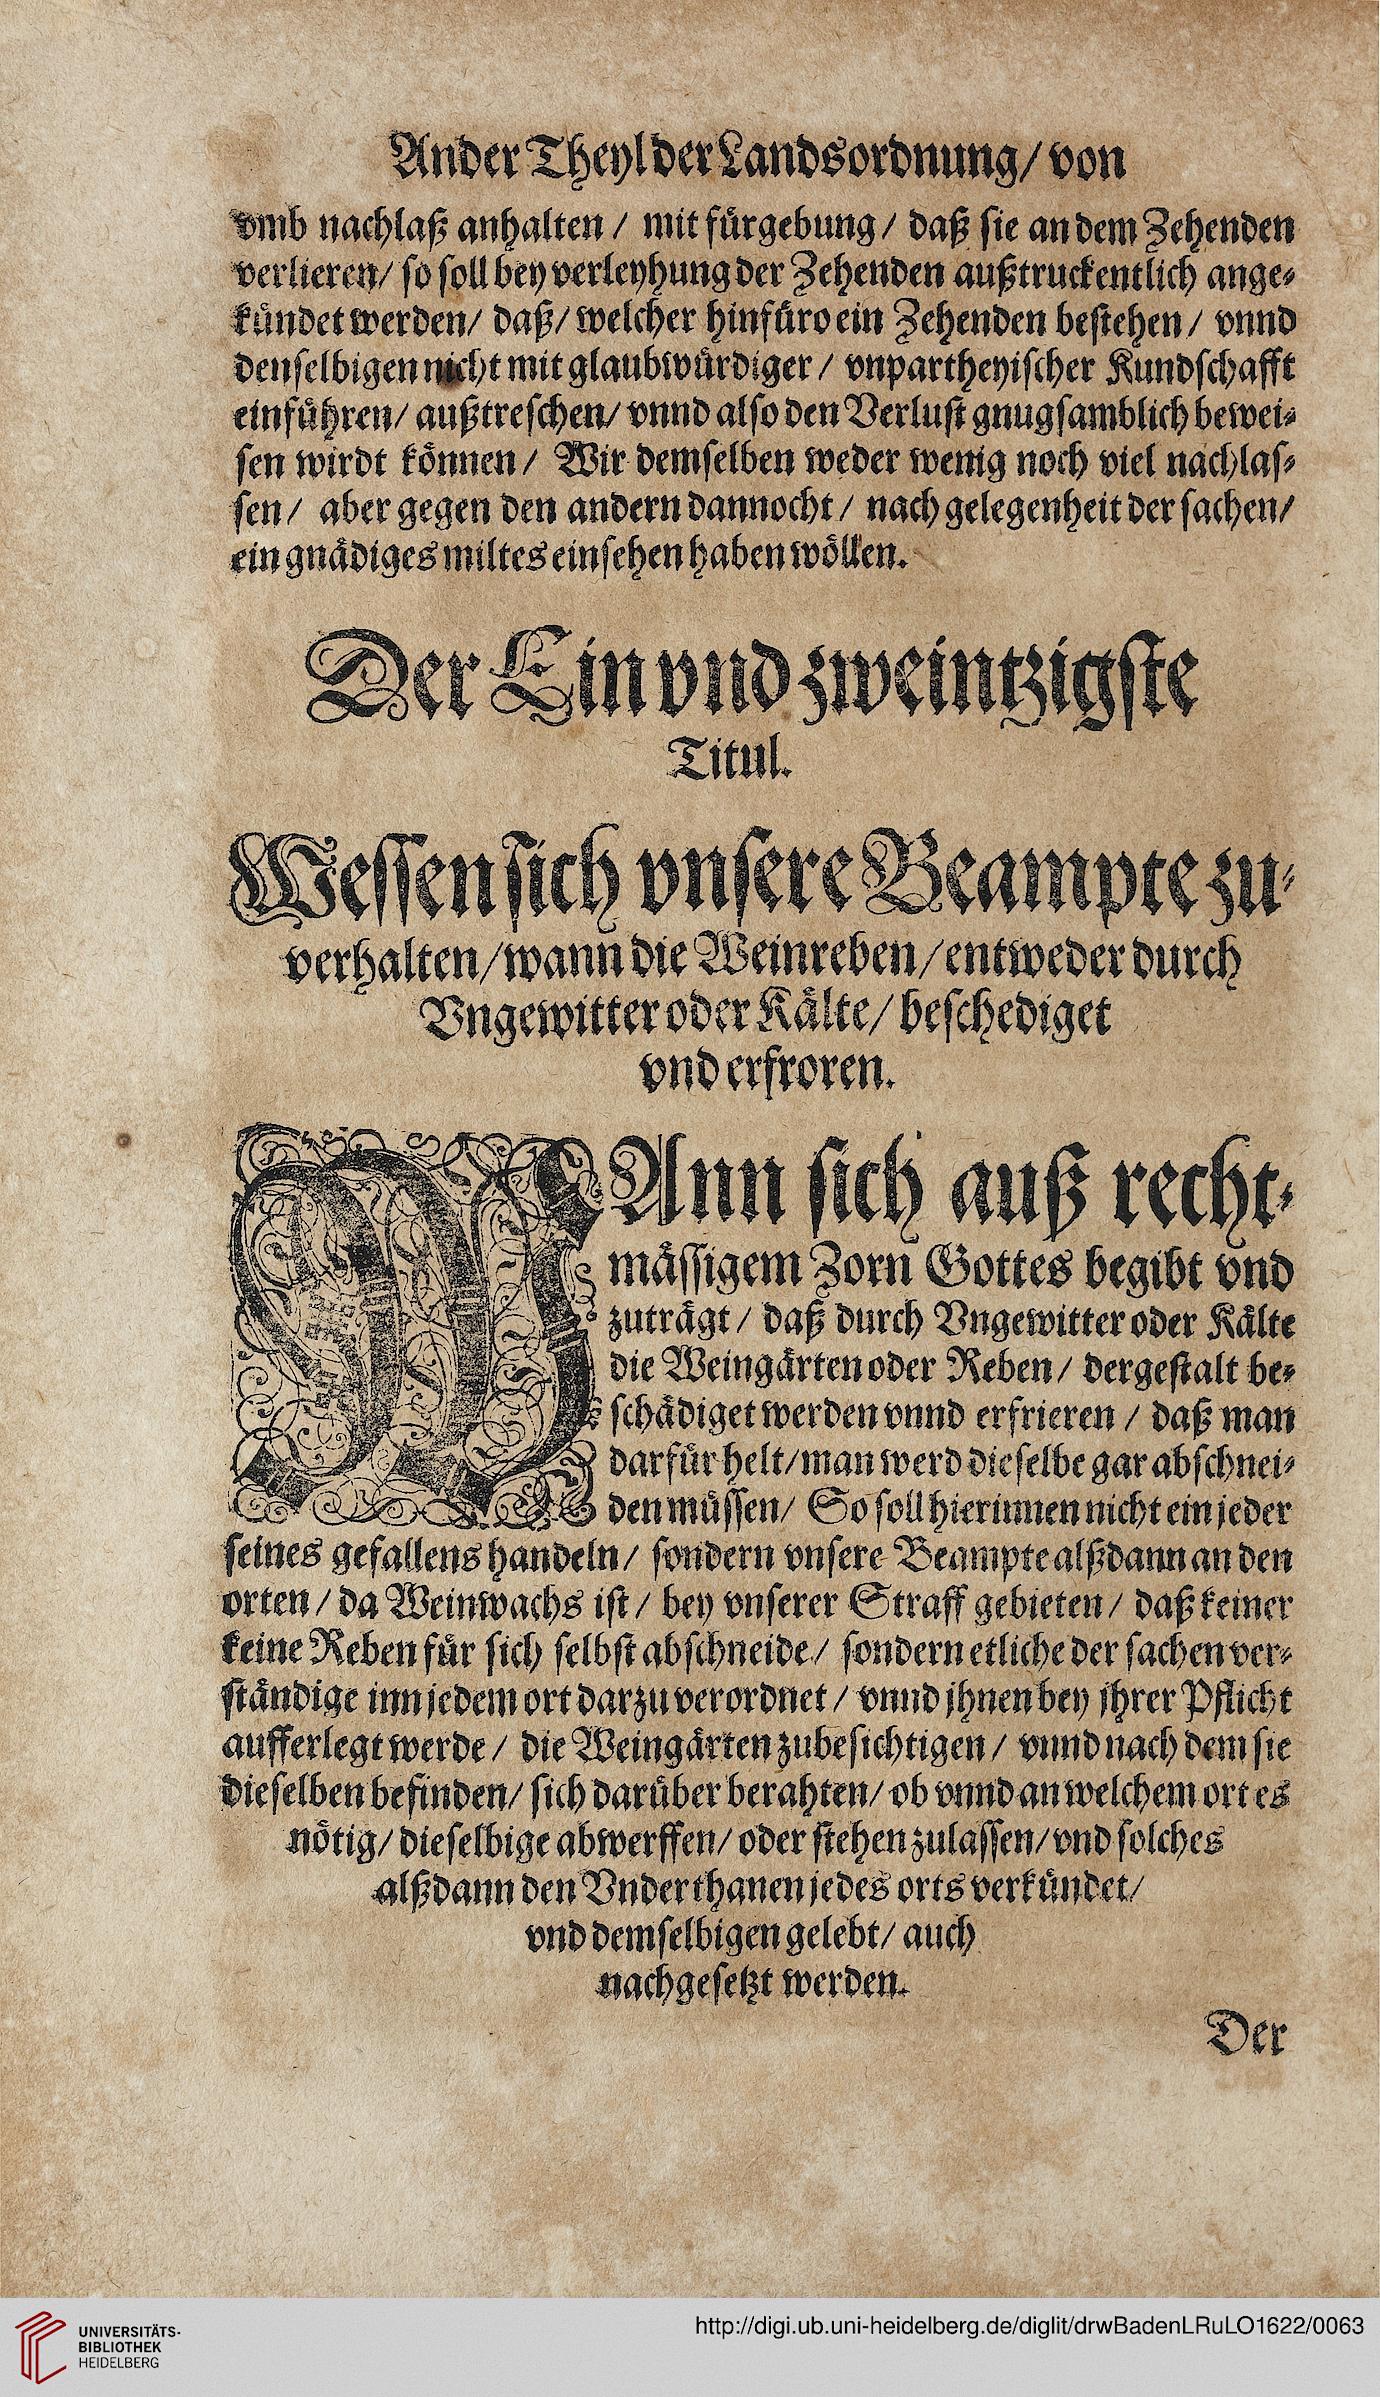 Ander Theyl der Landsordnung/ von
vmb nachlaß anhalten / mit fürgebung / daß sie an dem Zehenden
verlieren/ so soll bey verleyhung der Zehenden außtruckentlich ange-
kündet werden/ daß/ welcher hinfüro ein Zehenden bestehen / vnnd
denselbigen nicht mit glaubwürdiger / vnpartheyischer Kundschafft
einführen/ außtreschen/ vnnd also den Verlust gnugsamblich bewei-
sen wirdt können / Wir demselben weder wenig noch viel nachlas-
sen / aber gegen den andern dannocht / nach gelegenheit der sachen/
ein gnädiges miltes einsehen haben wöllen.
Der Ein vnd zweintzigste
Titul.
Wessen sich vnsere Beampte zu-
verhalten/wann die Weinreben/entweder durch
Vngewitter oder Kälte/ beschediget
vnd erfroren.
WAnn sich auß recht-
mässigem Zorn Gottes begibt vnd
zuträgt / daß durch Vngewitter oder Kälte
die Weingärten oder Reben / dergestalt be-
schädiget werden vnnd erfrieren / daß man
darfür helt/man werd dieselbe gar abschnei-
den müssen/ So soll hierinnen nicht ein jeder
seines gefallens handeln / sondern vnsere Beampte alßdann an den
orten / da Weinwachs ist / bey vnserer Straff gebieten / daß keiner
keine Reben für sich selbst abschneide / sondern etliche der sachen ver-
ständige inn jedem ort darzu verordnet / vnnd jhnen bey jhrer Pflicht
aufferlegt werde / die Weingärten zubesichtigen / vnnd nach dem sie
dieselben befinden/ sich darüber berahten/ ob vnnd an welchem ort es
nötig/ dieselbige abwerffen/ oder stehen zulassen/ vnd solches
alßdann den Vnderthanen jedes orts verkündet/
vnd demselbigen gelebt/ auch
nachgesetzt werden.
Der
UNIVERSITÄTS-
BIBLIOTHEK
HEIDELBERG
http://digi.ub.uni-heidelberg.de/diglit/drwBadenLRuLO1622/0063